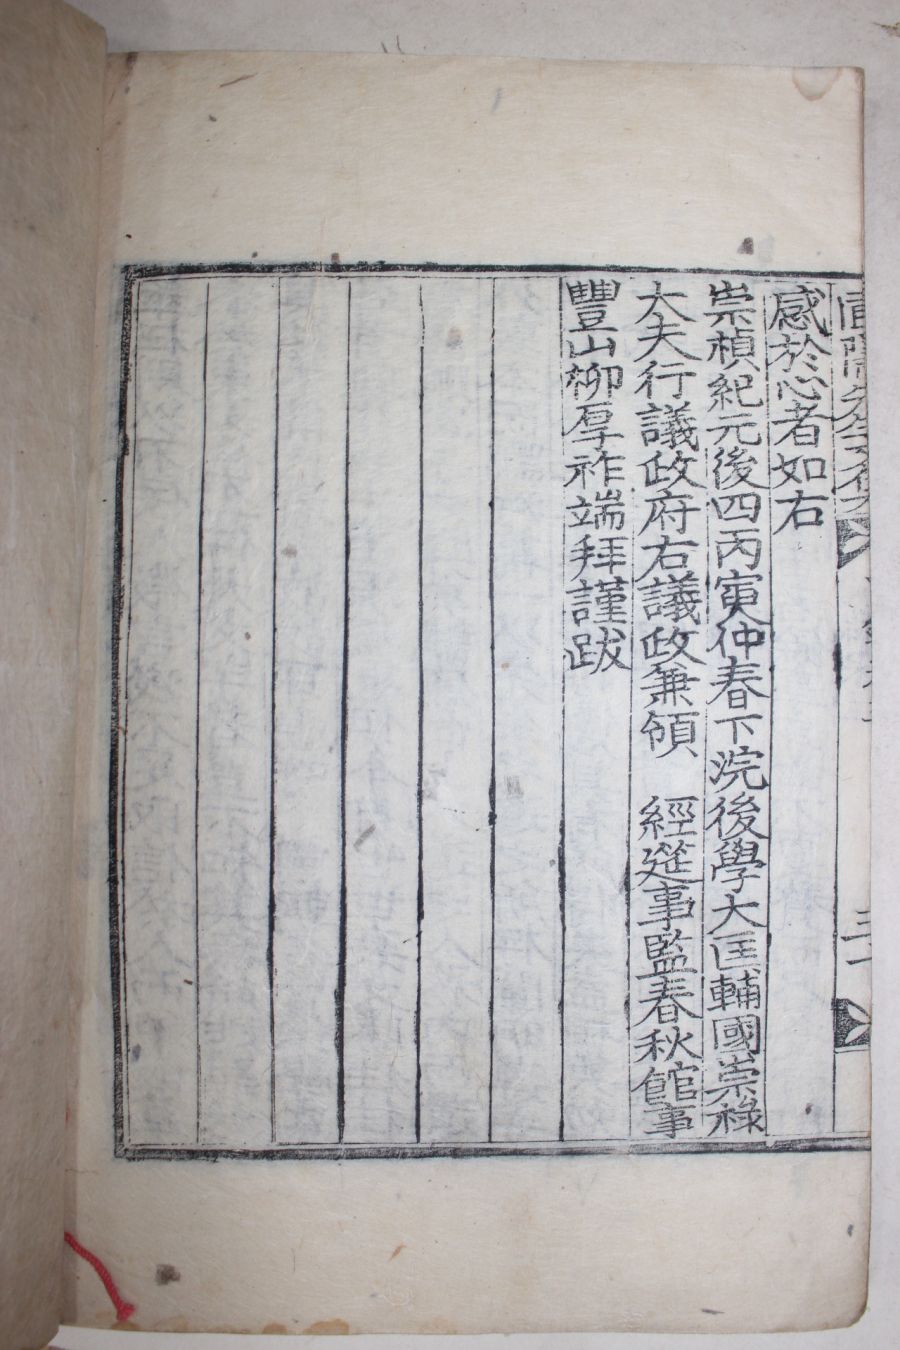 感於心者如右
崇禎紀元後四丙寅仲春下浣後學大匡輔國崇祿
大夫行議政府右議政兼領　經筵事監春秋館事
豐山柳厚祚端拜謹跋
三十